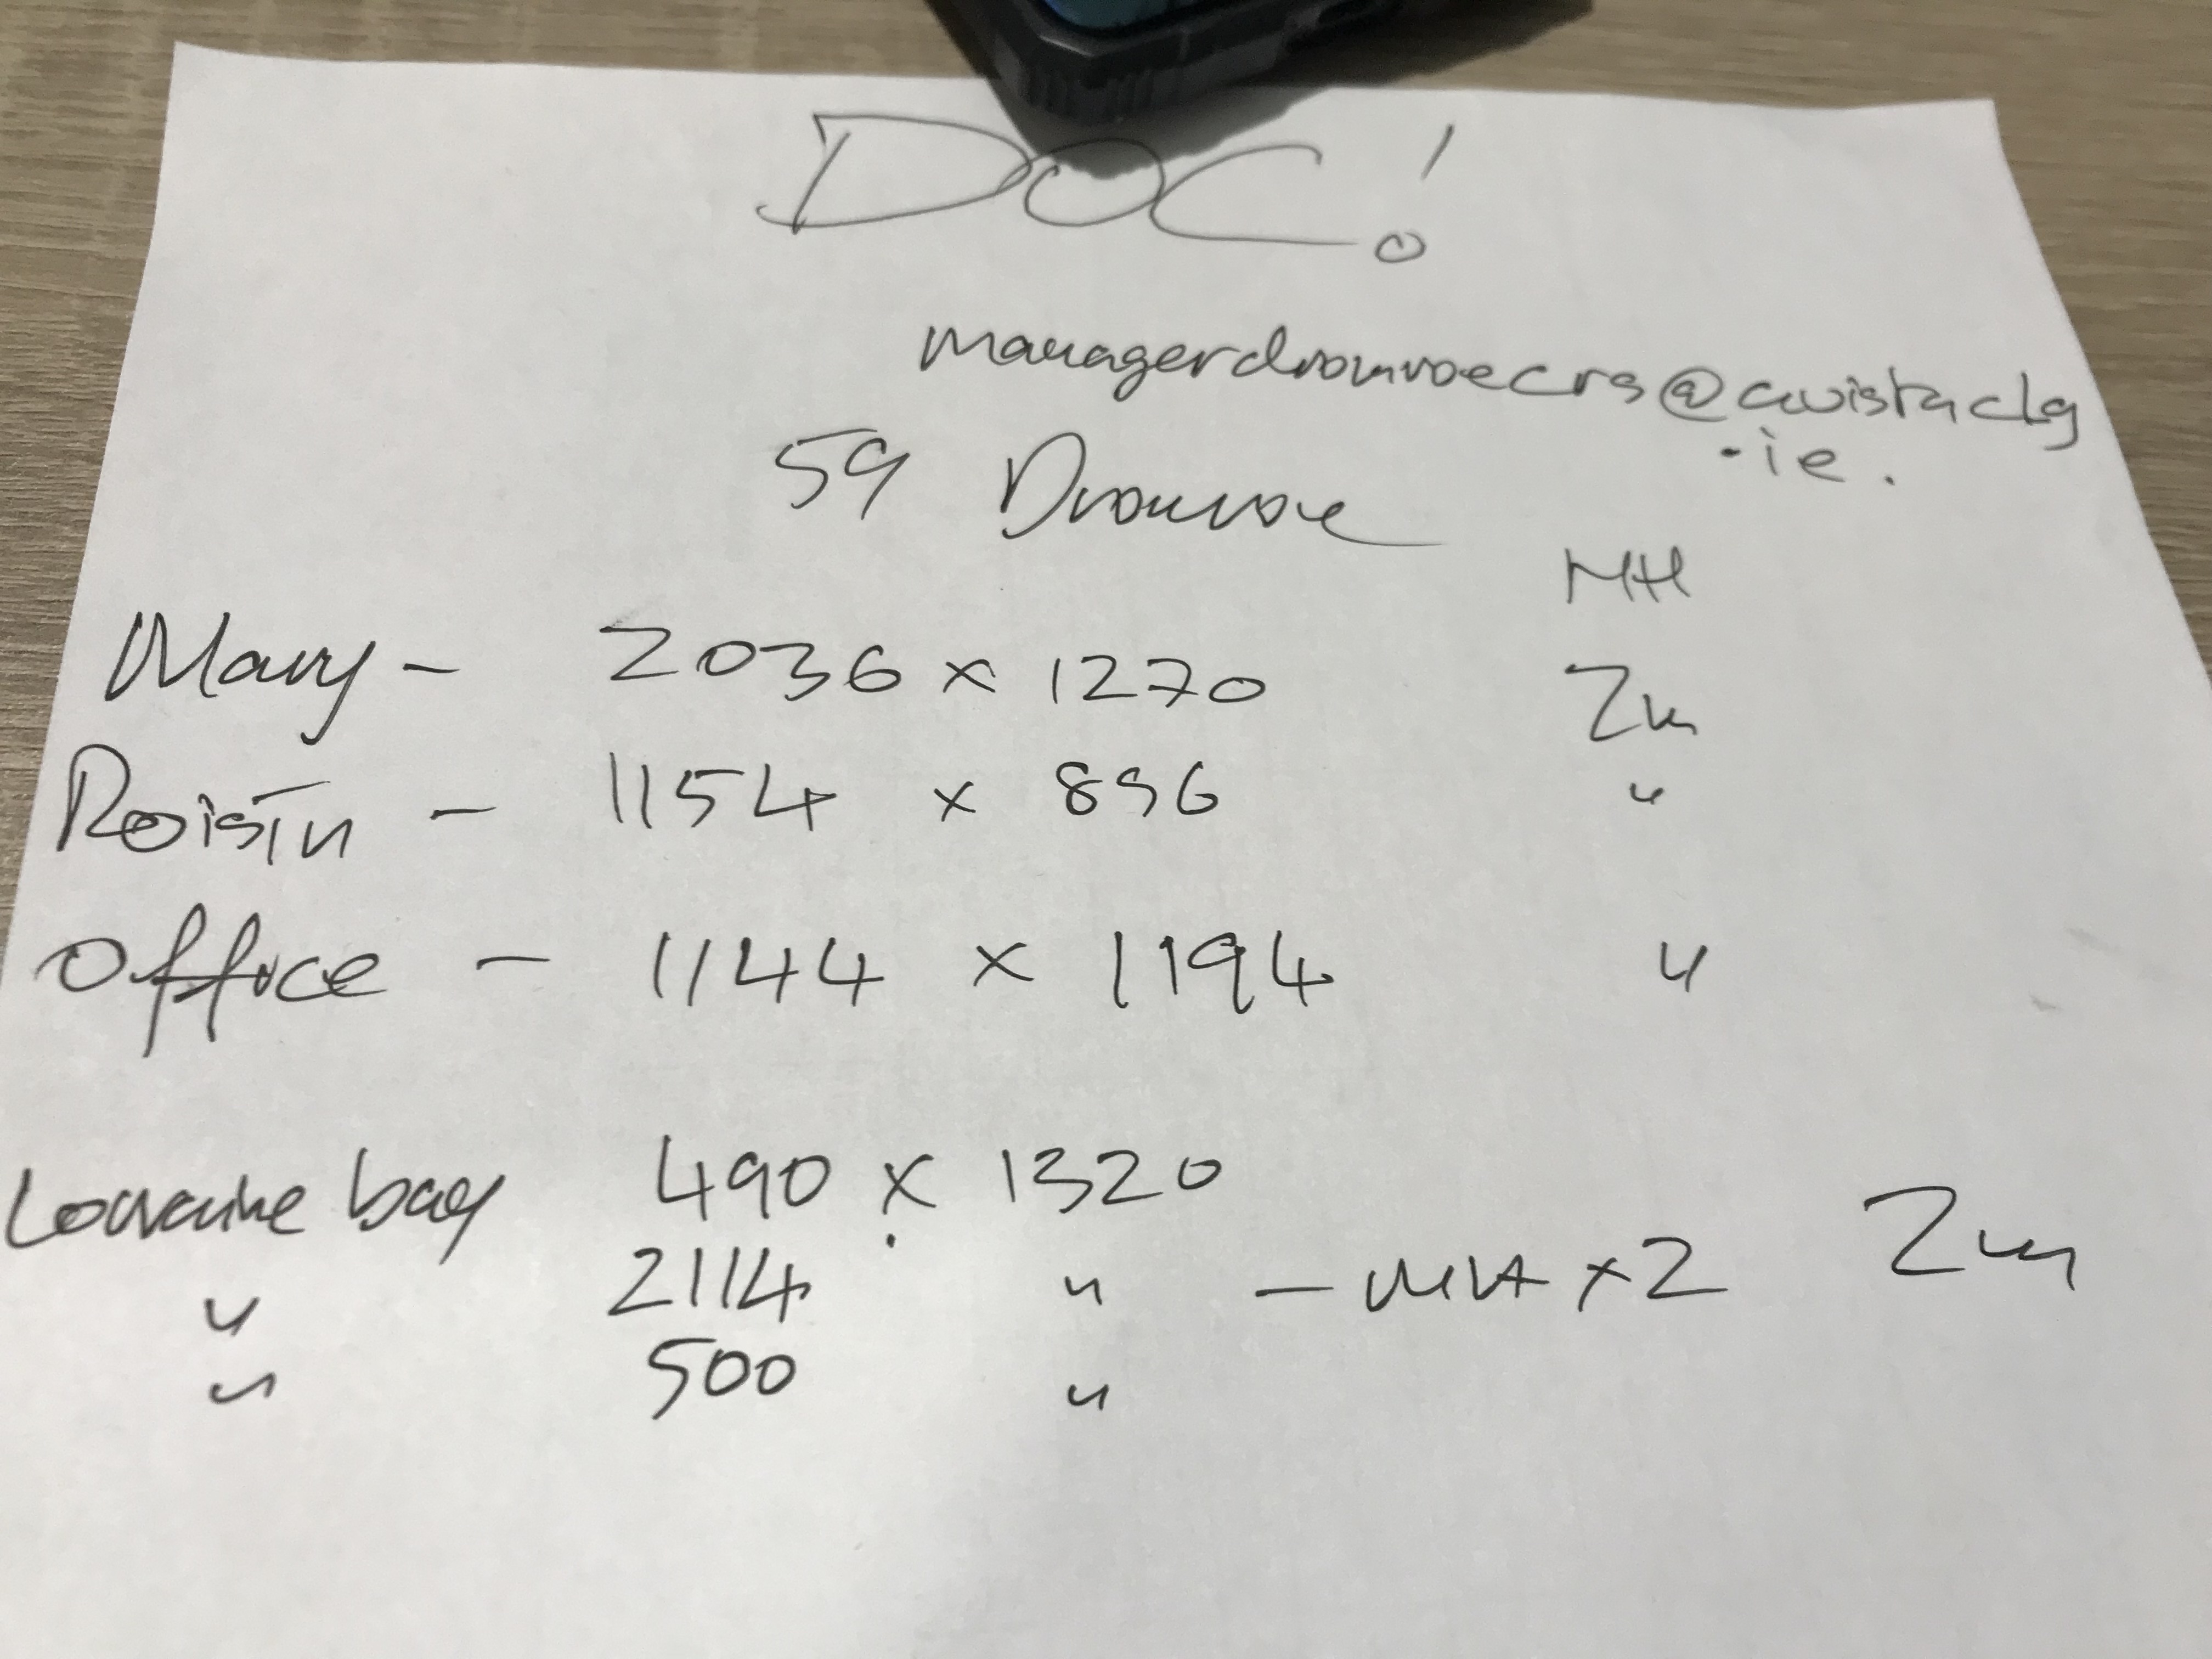 DOC!
managerdromroecrs@avistaclg
.ie.
59 Dromroe
MH
Mary - 2036 x 1270 2m
Roisín - 1154 x 896 "
Office - 1144 x 1194 "
Lorraine bay 490 x 1320
" 2114 " - MH x 2 2m
" 500 "